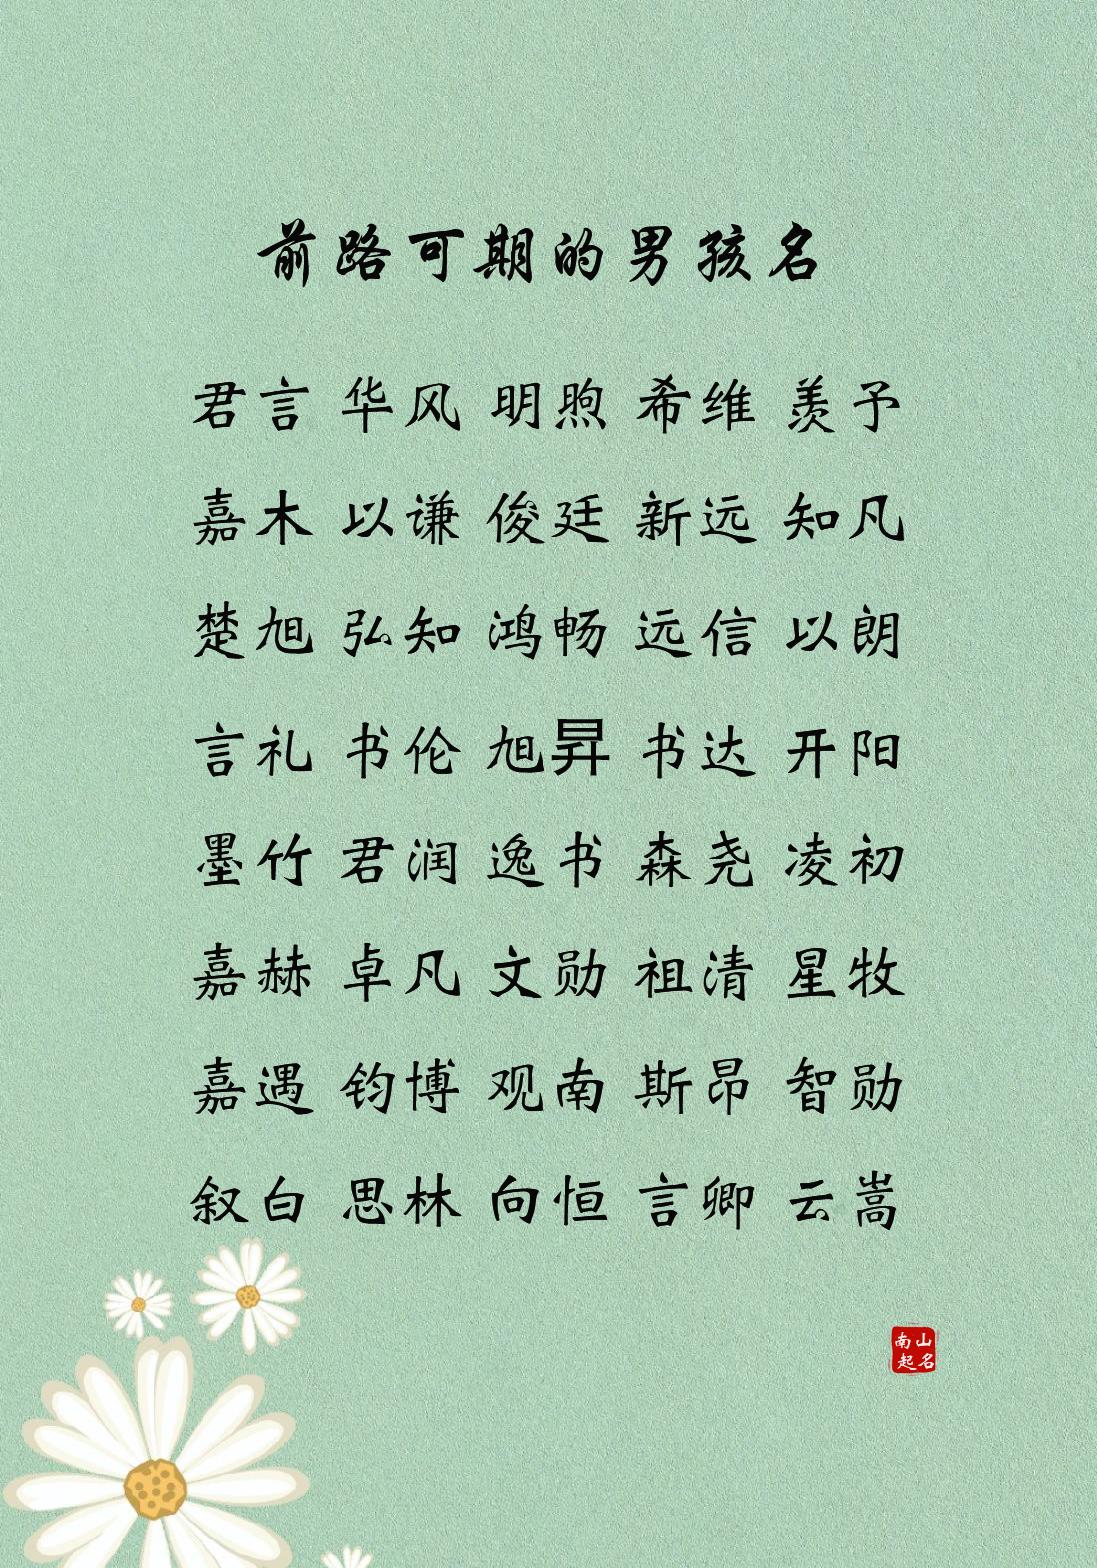 前路可期的男孩名
君言 华风 明煦 希维 羡予
嘉木 以谦 俊廷 新远 知凡
楚旭 弘知 鸿畅 远信 以朗
言礼 书伦 旭昇 书达 开阳
墨竹 君润 逸书 森尧 凌初
嘉赫 卓凡 文勋 祖清 星牧
嘉遇 钧博 观南 斯昂 智勋
叙白 思林 向恒 言卿 云嵩
南山
起名